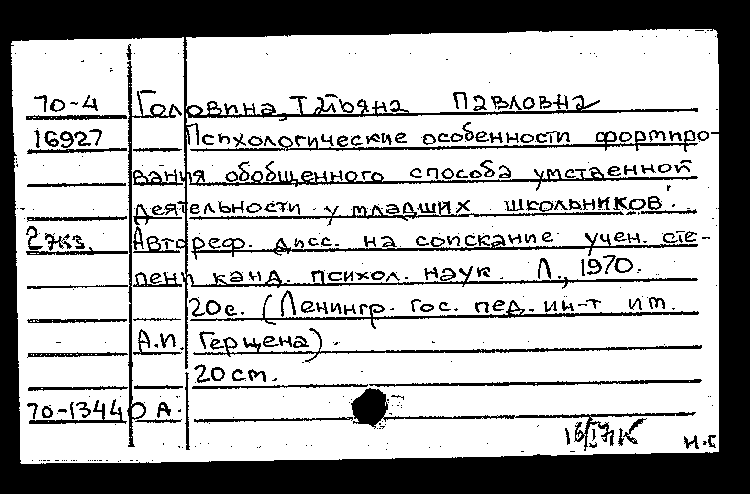 70-4 Головина, Татьяна Павловна
16927 Психологические особенности формиро-
вания обобщенного способа умственной
деятельности у младших школьников.
2 экз. Автореф. дисс. на соискание учен. сте-
пени канд. психол. наук. Л., 1970.
20с. (Ленингр. гос. пед. ин-т им.
А.И. Герцена).
20 см.
70-13440 А.